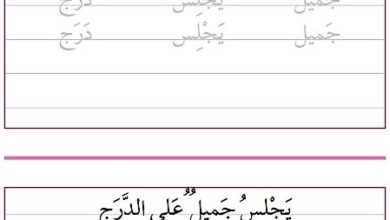 جَميل يَجْلِس دَرَج
جَميل يَجْلِس دَرَج
يَجْلِسُ جَميلٌ عَلى الدَّرَجِ